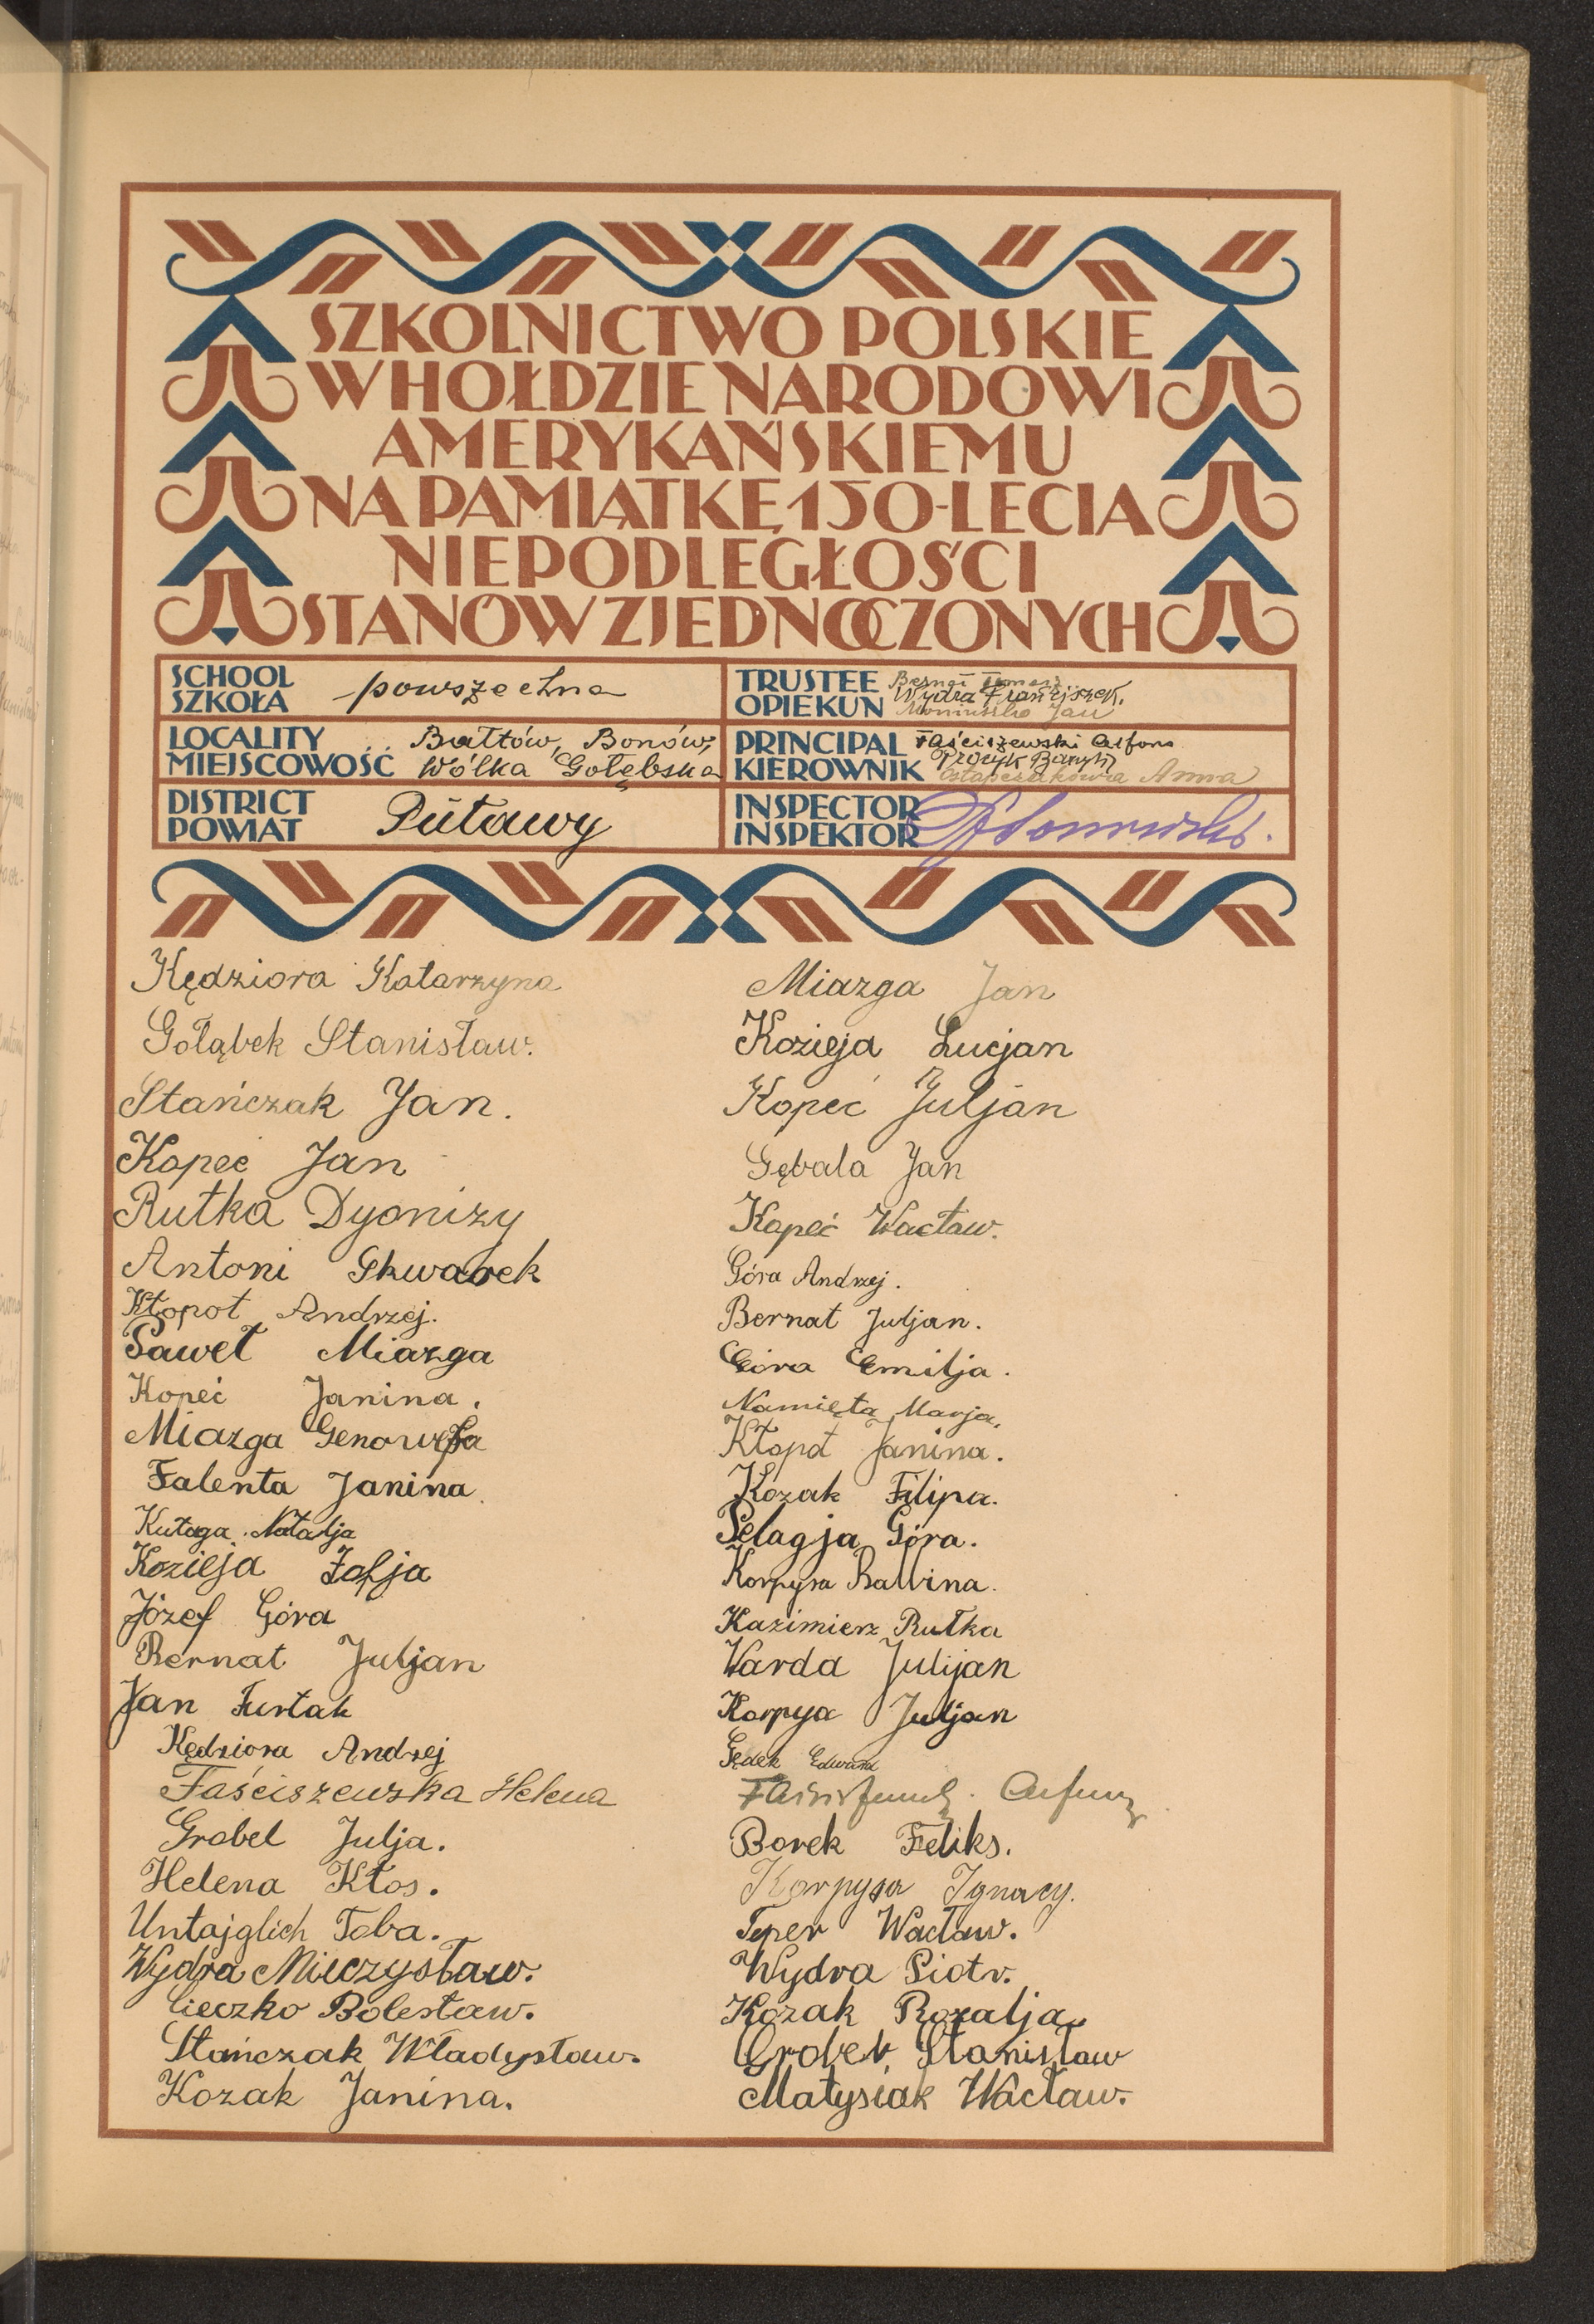 SZKOLNICTWO POLSKIE
W HOŁDZIE NARODOWI
AMERYKAŃSKIEMU
NA PAMIĄTKĘ 150-LECIA
NIEPODLEGŁOŚCI
STANÓW ZJEDNOCZONYCH
SCHOOL
SZKOŁA
powszechna
TRUSTEE
OPIEKUN
Wydra Franciszek.
Moniuszko Jan
LOCALITY
MIEJSCOWOŚĆ
Bałtów, Bonów,
Wólka Gołębska
PRINCIPAL
KIEROWNIK
Faściszewski Alfons
Anna
DISTRICT
POWIAT
Puławy
INSPECTOR
INSPEKTOR
Kędziora Katarzyna
Gołąbek Stanisław.
Stańczak Jan.
Kopeć Jan
Rutka Dyonizy
Antoni Skwarek
Kłopot Andrzej.
Paweł Miazga
Kopeć Janina.
Miazga Genowefa
Falenta Janina
Kutaga Natalja
Kozieja Zofja
Józef Góra
Bernat Juljan
Jan Furtak
Kędziora Andrzej
Faściszewska Helena
Grobel Julja.
Helena Kłos.
Untajglich Toba.
Wydra Mieczysław.
Cieczko Bolesław.
Stańczak Władysław.
Kozak Janina.
Miazga Jan
Kozieja Lucjan
Kopeć Juljan
Gębala Jan
Kopeć Wacław.
Góra Andrzej.
Bernat Juljan.
Góra Emilja.
Namięta Marja.
Kłopot Janina.
Kozak Filipa.
Pelagja Góra.
Korpysa Balbina.
Kazimierz Rutka
Warda Julijan
Korpya Juljan
Gędek Edward
Borek Feliks.
Korpysa Ignacy.
Teper Wacław.
Wydra Piotr.
Kozak Rozalja.
Grobel Stanisław
Matysiak Wacław.